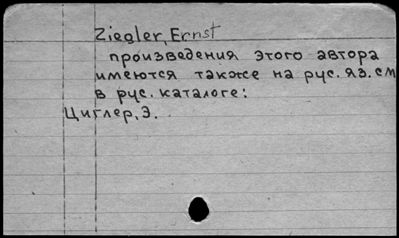 Ziegler, Ernst
произведения этого автора
имеются также на рус. яз. см
в рус. каталоге:
Циглер, Э.